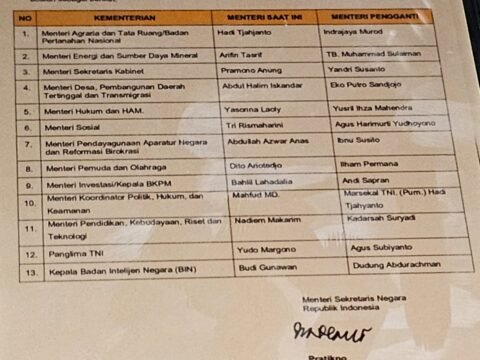 NO KEMENTERIAN MENTERI SAAT INI MENTERI PENGGANTI
1. Menteri Agraria dan Tata Ruang/Badan Pertanahan Nasional Hadi Tjahjanto Indrajaya Murod
2. Menteri Energi dan Sumber Daya Mineral Arifin Tasrif TB. Muhammad Sulaiman
3. Menteri Sekretaris Kabinet Pramono Anung Yandri Susanto
4. Menteri Desa, Pembangunan Daerah Tertinggal dan Transmigrasi Abdul Halim Iskandar Eko Putro Sandjojo
5. Menteri Hukum dan HAM. Yasonna Laoly Yusril Ihza Mahendra
6. Menteri Sosial Tri Rismaharini Agus Harimurti Yudhoyono
7. Menteri Pendayagunaan Aparatur Negara dan Reformasi Birokrasi Abdullah Azwar Anas Ibnu Susito
8. Menteri Pemuda dan Olahraga Dito Ariotedjo Ilham Permana
9. Menteri Investasi/Kepala BKPM Bahlil Lahadalia Andi Sapran
10. Menteri Koordinator Politik, Hukum, dan Keamanan Mahfud MD. Marsekal TNI. (Purn.) Hadi Tjahyanto
11. Menteri Pendidikan, Kebudayaan, Riset dan Teknologi Nadiem Makarim Kadarsah Suryadi
12. Panglima TNI Yudo Margono Agus Subiyanto
13. Kepala Badan Intelijen Negara (BIN) Budi Gunawan Dudung Abdurachman
Menteri Sekretaris Negara
Republik Indonesia
Pratikno